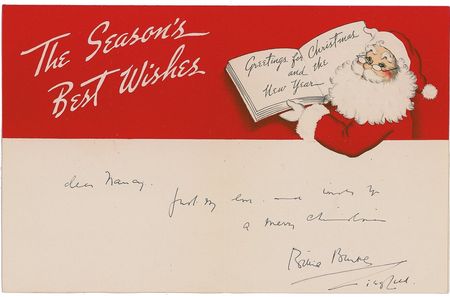 The Season's
Best Wishes
Greetings for Christmas
and the
New Year
dear Nancy.
Just my love and
a merry Christmas
Billie Burke
Ziegfeld